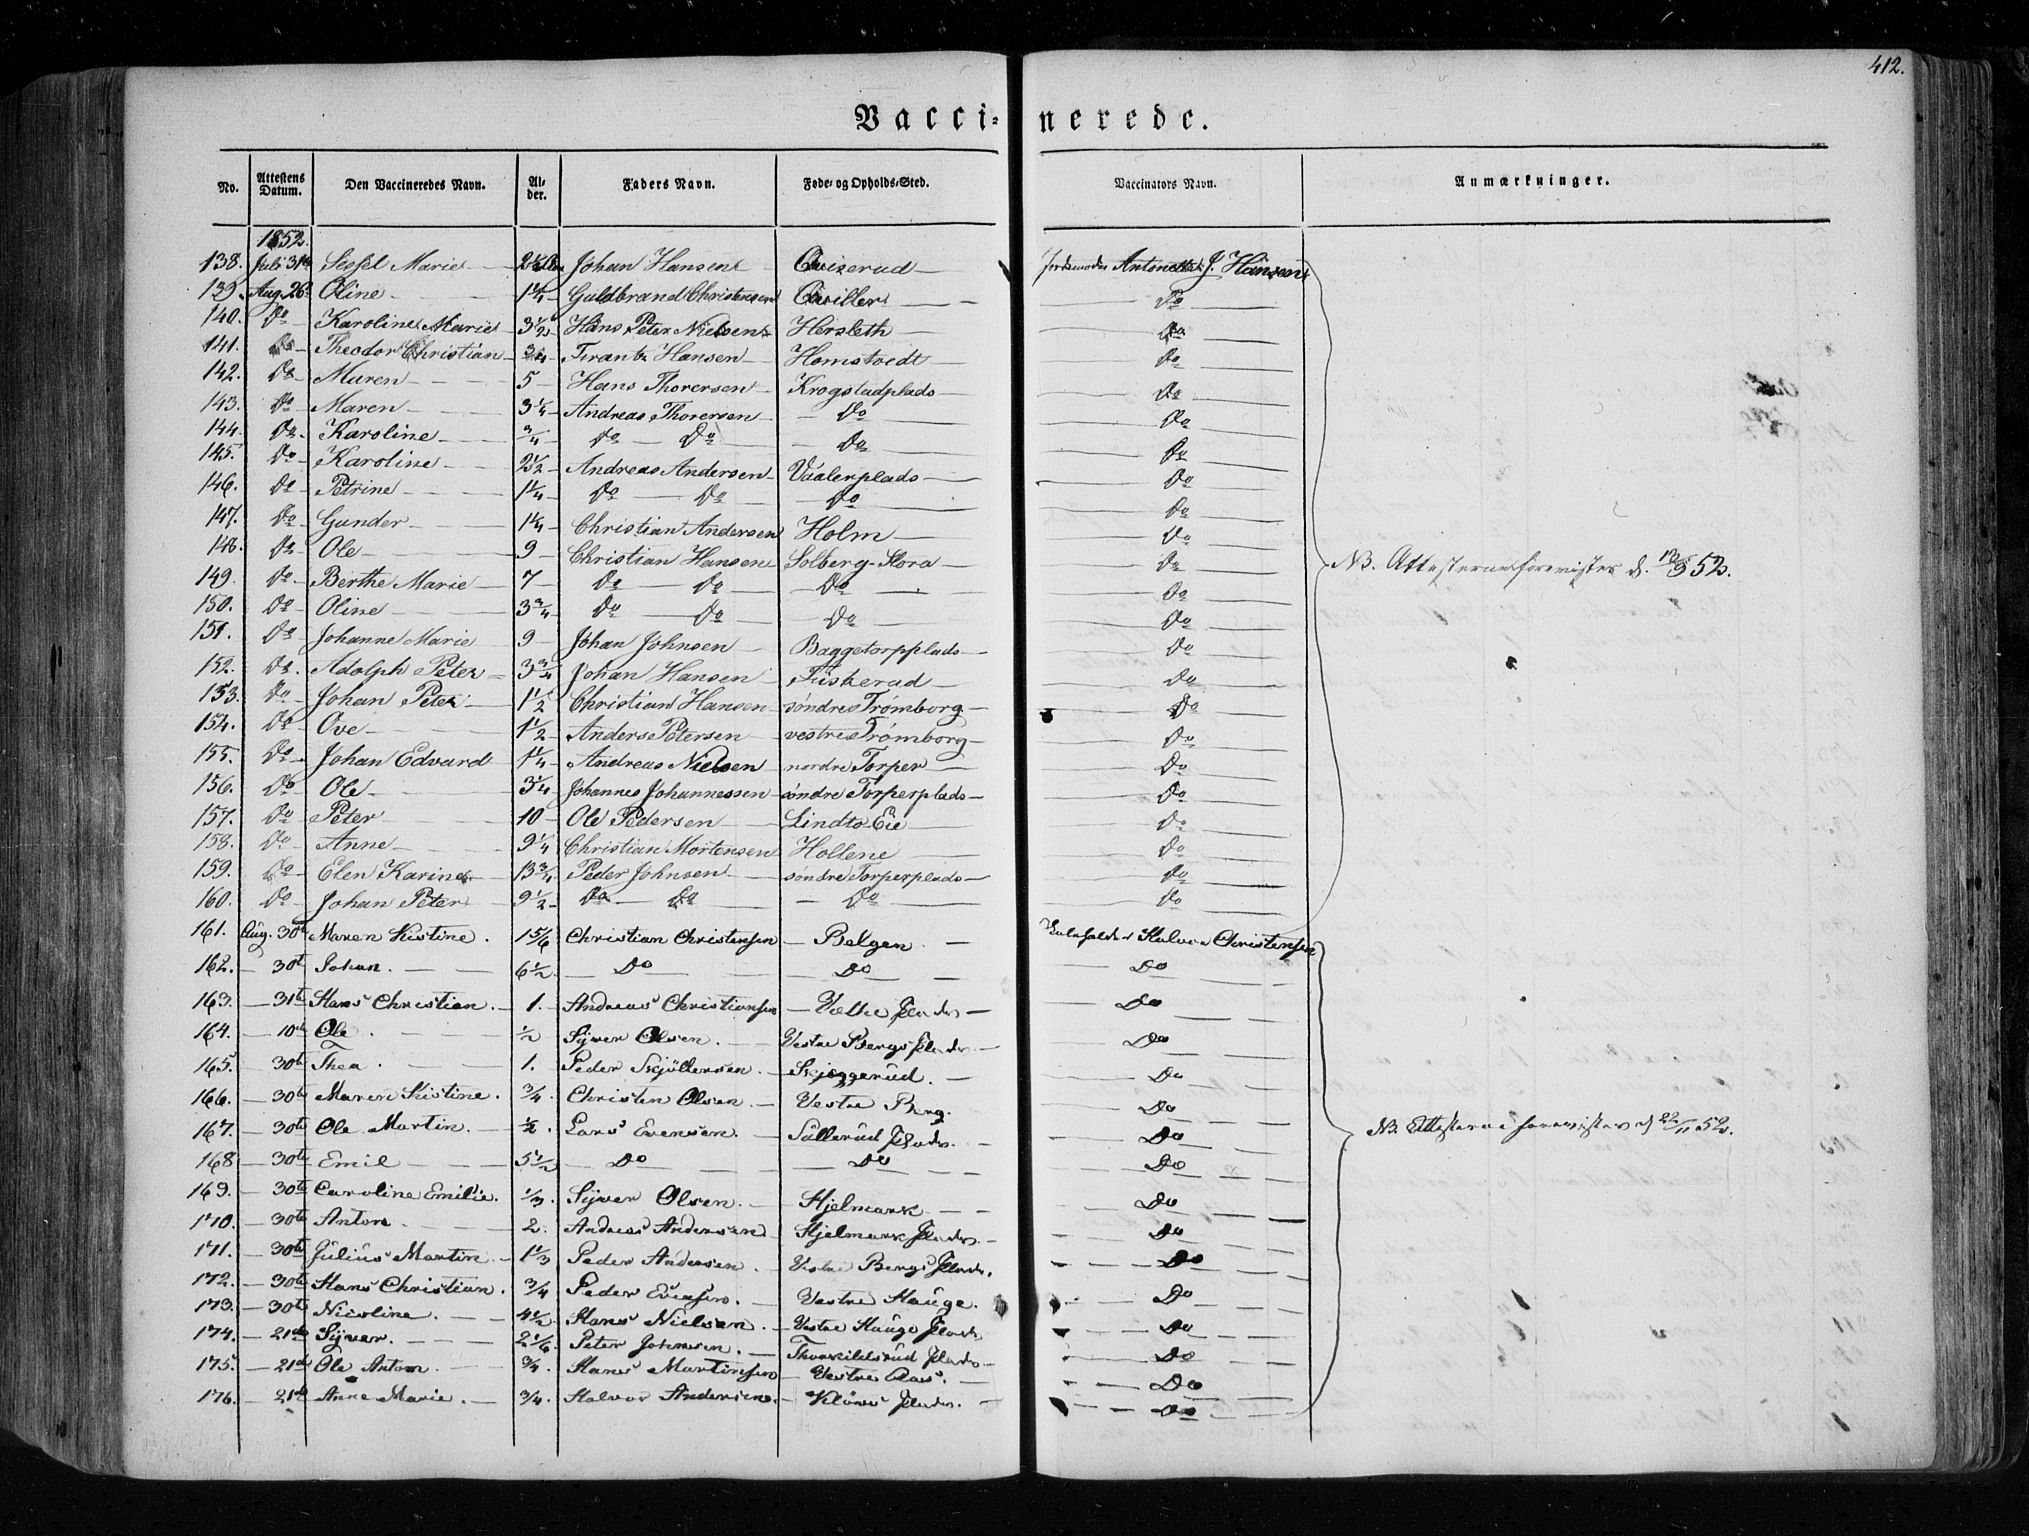 412.
Vaccinerede.
No. Attestens Datum. Den Vaccineredes Navn. Alder. Faders Navn. Føde- og Opholds-Sted. Vaccinators Navn. Anmærkninger.
1852.
138. Juli 31 Sessel Marie Johan Hansen Jordemoder Antonette J. Hansen
139. Aug. 26 Oline 1 1/4 Guldbrand Christensen Do
140. Do Karoline Marie 3 1/2 Hans Peter Nielsen Hersleth Do
141. Do Theodor Christian 3/4 Frantz Hansen Homstvedt Do
142. Do Maren 5 Hans Thorersen Krogstadplads Do
143. Do Maren 3 1/4 Andreas Thorersen Do Do
144. Do Karoline 3/4 Do Do Do Do
145. Do Karoline 2 1/2 Andreas Andersen Vaalerplads Do
146. Do Petrine 1 1/4 Do Do Do Do
147. Do Gunder 1 1/4 Christian Andersen Holm Do
148. Do Ole 9 Christian Hansen Solberg-Stora Do NB. Attesterne d. 52.
149. Do Berthe Marie 7 Do Do Do Do
150. Do Oline 3 3/4 Do Do Do Do
151. Do Johanne Marie 9 Johan Johnsen Baggetorpplads Do
152. Do Adolph Peter 3 3/4 Johan Hansen Fuskerud Do
153. Do Johan Peter 1 1/2 Christian Hansen søndre Trømborg Do
154. Do Ove 1 1/2 Anders Petersen vestre Trømborg Do
155. Do Johan Edvard 1 1/4 Andreas Nielsen nordre Torper Do
156. Do Ole 3 1/4 Johannes Johannessen søndre Torperplads Do
157. Do Peter 10 Ole Pedersen Lindto Eie Do
158. Do Anne 9 1/4 Christian Mortensen Hollene Do
159. Do Elen Karine 13 3/4 Peder Johnsen søndre Torperplads Do
160. Do Johan Peter 9 1/2 Do Do Do Do
161. Aug. 30te Maren Kistine. 1 5/6 Christian Christensen Belgen Halvor Christensen
162. 30t Johan. 6 1/2 Do Do Do
163. 31te Hans Christian. 1. Andreas Christiansen Do
164. 10de Ole. 1/2 Syver Olsen. Vestre Bergs Plads Do
165. 30te Thea. 1. Peder Skjöllersen. Skjeggerud. Do
166. 30te Maren Kistine. 3/4 Christen Olsen Vestre Berg. Do
167. 30te Ole Martin. 1/2. Lars Evensen. Sallerud Plads. Do NB. Attesterne d 22/11 52.
168 30te Emil 5 1/2 Do Do Do
169. 30te Caroline Emilie. 1/3. Syver Olsen. Hjelmark. Do
170. 30te Anton 2. Andreas Andersen Hjelmark Plads. Do
171. 30te Julius Martin 1 1/3 Peder Andersen. Vestre Bergs Plads. Do
172. 30te Hans Christian. 3/4 Peder Evensen. Vestre Hauge. Do
173. 30te Nicoline. 4 1/2 Hans Nielsen. Vestre Hauge Plads Do
174. 21de Syver. 2 1/6 Peter Johnsen. Thorkildsrud Plads Do
175. 21de Ole Anton. 3/4. Hans Martinsen Vestre Do
176. 21de Anne Marie. 3/4. Halvor Andersen. Plads. Do